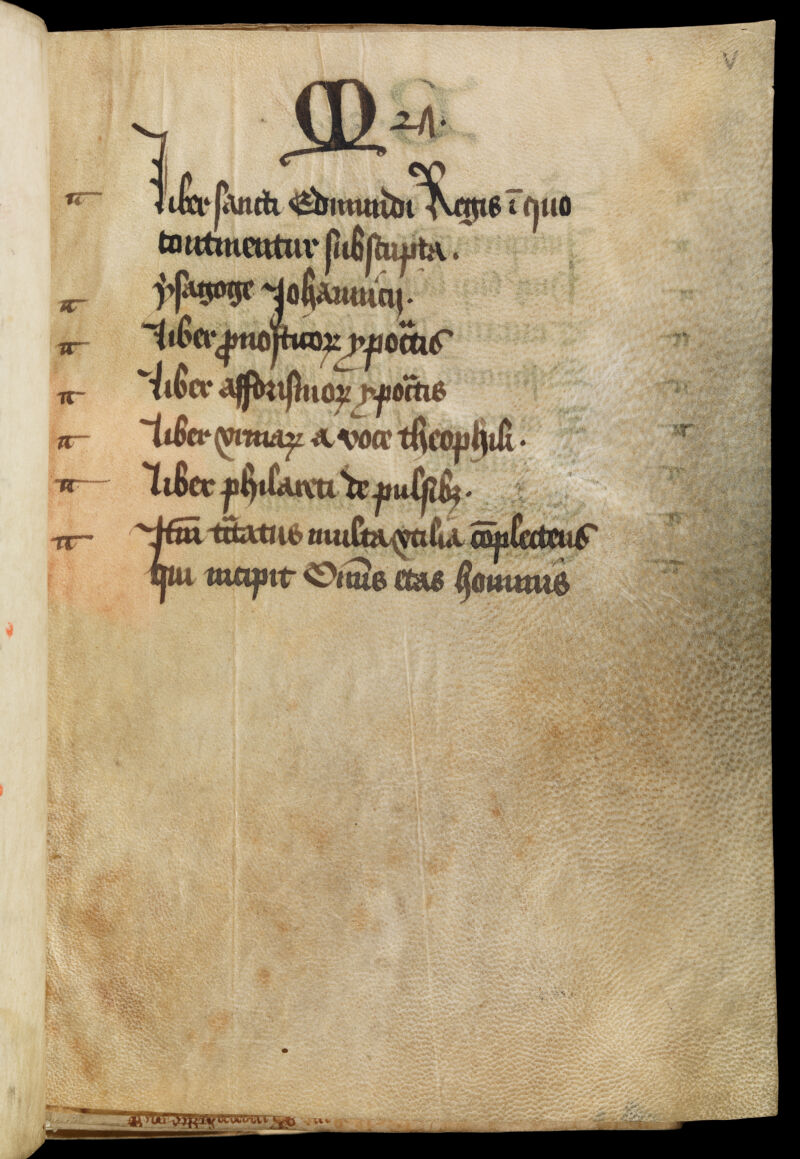 M 21.
v
Liber sancti Edmundi Regis ī quo
continentur subscripta.
ysagoge Johannicij.
Liber pͦnosticoꝝ ypoc̃tis
Liber afforismoꝝ ypoc̃tis
Liber vrinaꝝ a voce theophili.
Liber philareti de pulsibꝫ.
Itm̄ tc̃tatus multa vtilia cōplectens
qui incipit Omīs etas hominis